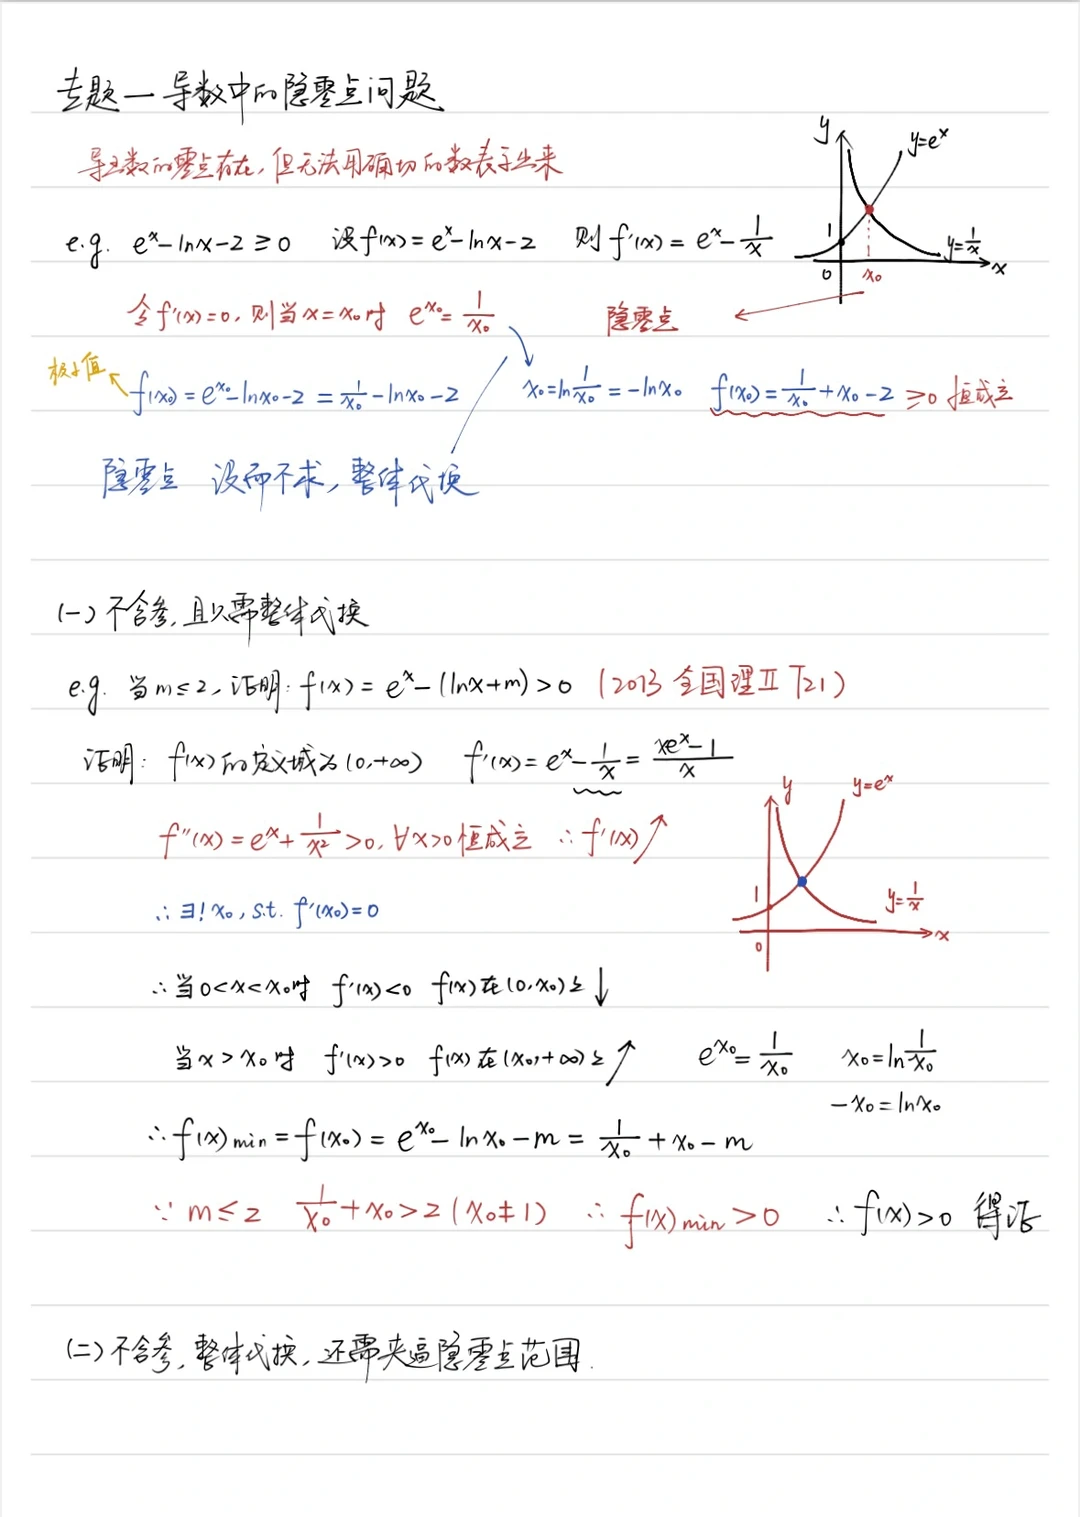 专题一 导数中的隐零点问题
导函数的零点存在，但无法用确切的数表示出来
y
y=e^x
1
0
x₀
y=1/x
x
e.g. e^x-lnx-2≥0 设f(x)=e^x-lnx-2 则f'(x)=e^x-1/x
令f'(x)=0，则当x=x₀时 e^x₀=1/x₀ 隐零点
极小值
f(x₀)=e^x₀-lnx₀-2=1/x₀-lnx₀-2 x₀=ln1/x₀=-lnx₀ f(x₀)=1/x₀+x₀-2≥0 恒成立
隐零点 设而不求，整体代换
(一)不含参，且只需整体代换
e.g. 当m≤2，证明：f(x)=e^x-(lnx+m)>0 (2013 全国理Ⅱ T21)
证明：f(x)的定义域为(0,+∞) f'(x)=e^x-1/x=(xe^x-1)/x
y
y=e^x
1
0
y=1/x
x
f''(x)=e^x+1/x²>0，∀x>0恒成立 ∴f'(x)↗
∴∃!x₀，s.t. f'(x₀)=0
∴当0<x<x₀时 f'(x)<0 f(x)在(0,x₀)上↓
当x>x₀时 f'(x)>0 f(x)在(x₀,+∞)上↗ e^x₀=1/x₀ x₀=ln1/x₀
-x₀=lnx₀
∴f(x)min=f(x₀)=e^x₀-lnx₀-m=1/x₀+x₀-m
∵m≤2 1/x₀+x₀>2(x₀≠1) ∴f(x)min>0 ∴f(x)>0 得证
(二)不含参，整体代换，还需夹逼隐零点范围.